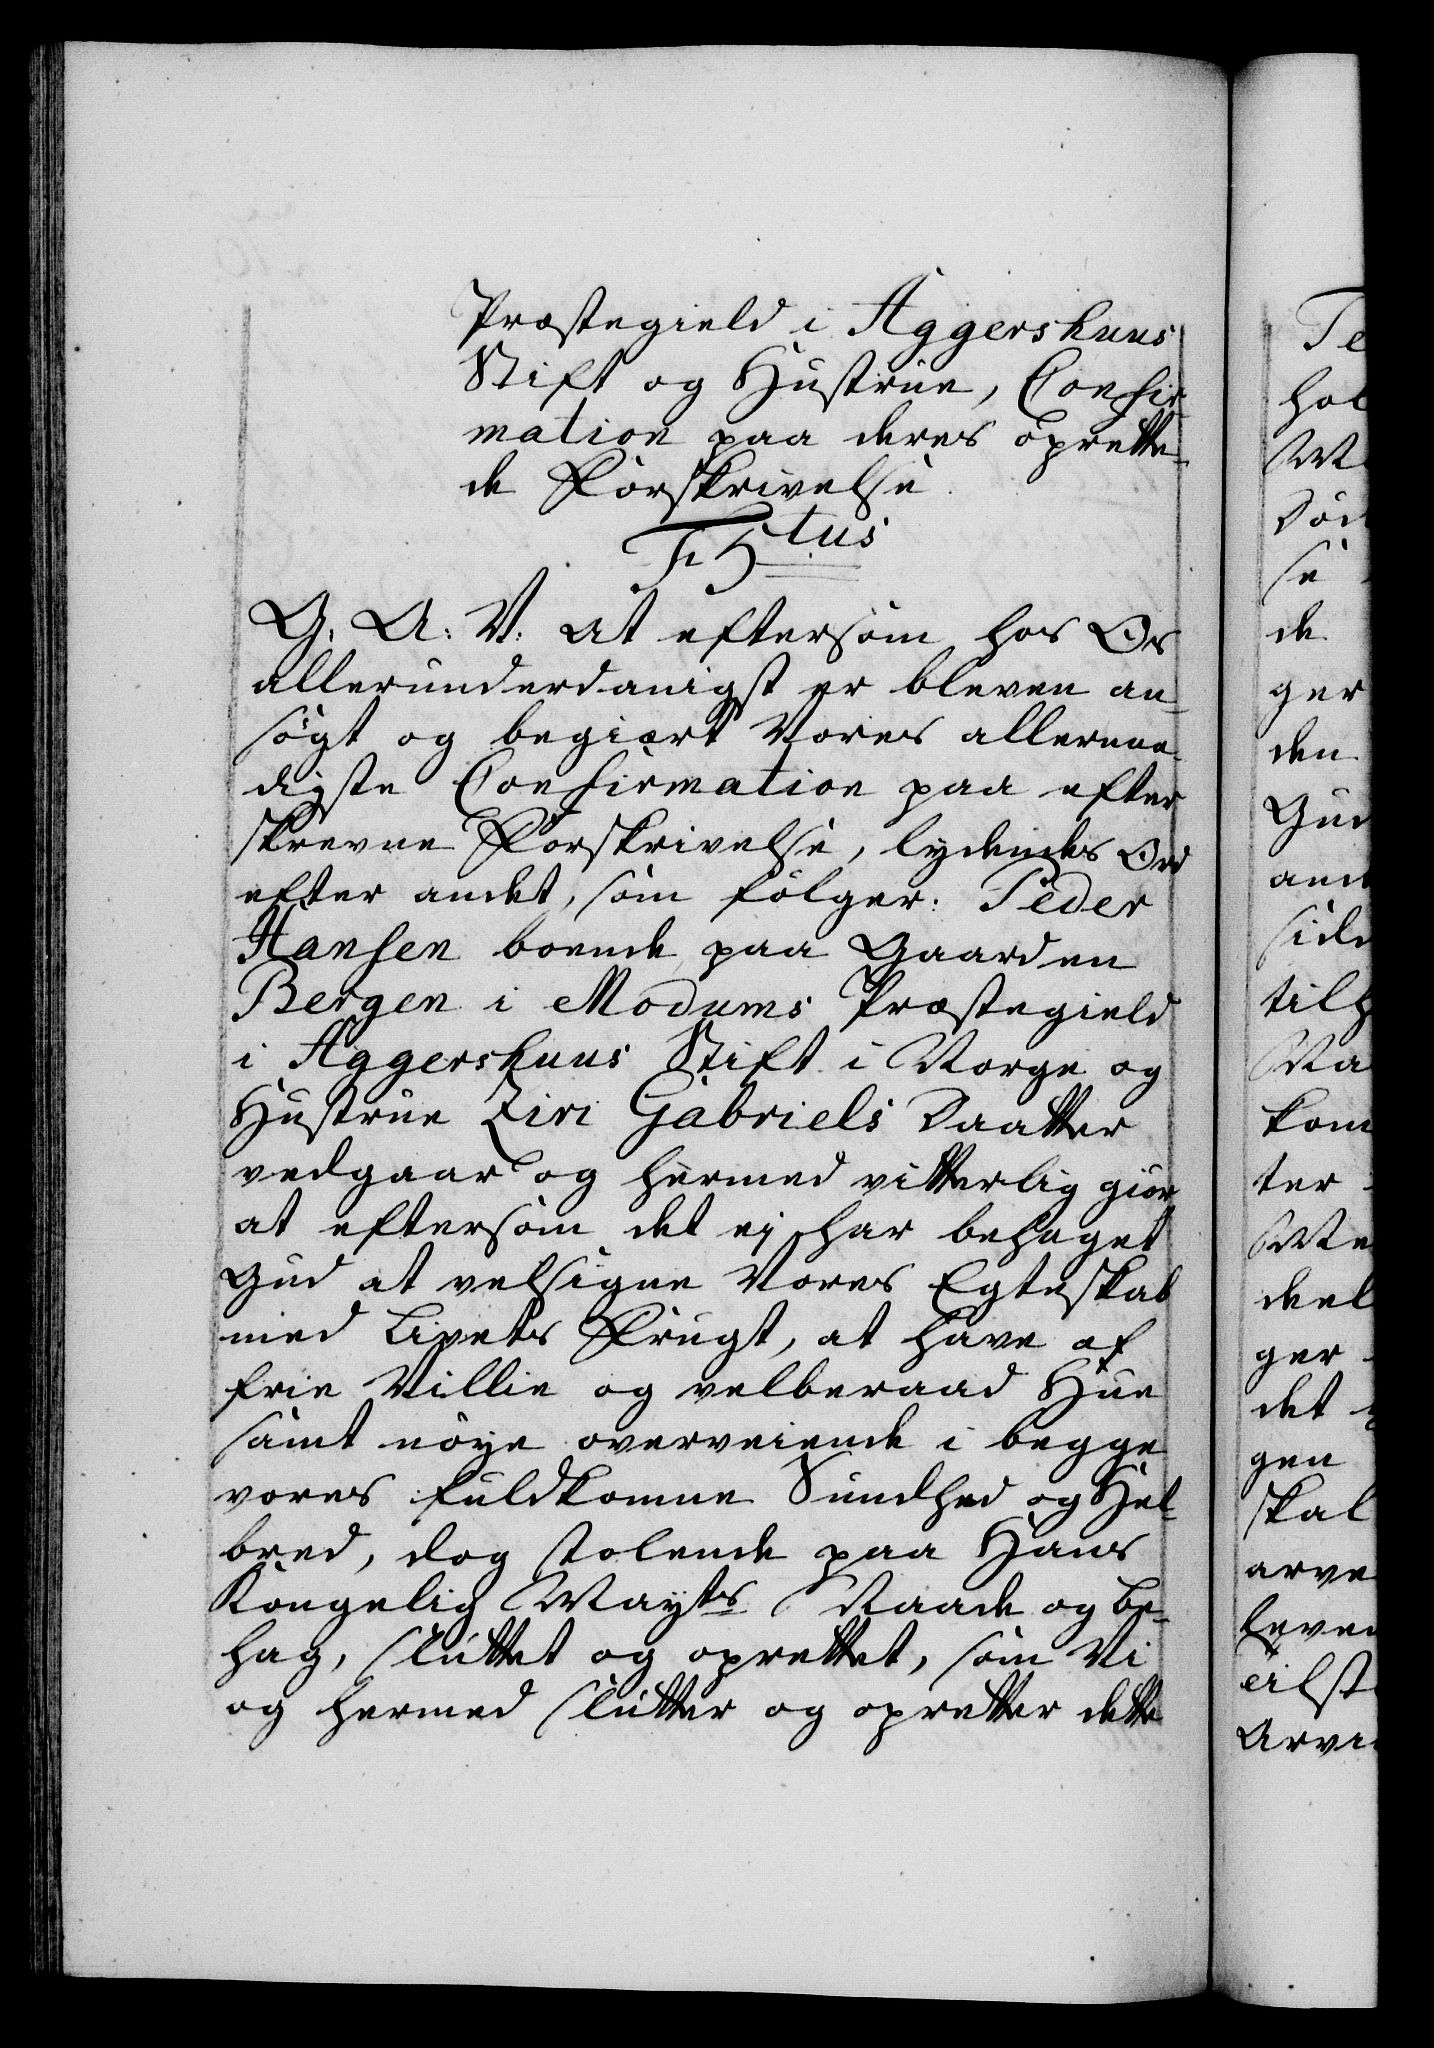 Præstegield i Aggershuus
Stift og Hustrue, Confir-
mation paa deres oprette-
de Forskrivelse.
F 5tus
G: A: V: at eftersom hos Os
allerunderdanigst er bleven an-
søgt og begiært Vores allernaa-
digste Confirmation paa efter
skrevne Forskrivelse, lydendes Ord
efter andet, som følger: Peder
Hansen boende paa Gaarden
Bergen i Modums Præstegield
i Aggershuus Stift i Norge og
Hustrue Ziri Gabriels Daatter
vedgaar og hermed vitterlig giør
at eftersom det ej har behaget
Gud at velsigne Vores Egteskab
med Livets Frugt, at have af
frie Villie og velberaad Hue
samt nøye overveiende i begge
vores fuldkomne Sundhed og Hel-
bred, dog stolende paa Hans
Kongelig Mayts Naade og be-
hag, sluttet og oprettet, som Vi
og hermed slutter og opretter dette
Te
hol
Død
se
de
ger
den
Gud
and
side
tilh
Na
kom
ter
Me
deel
ger
det
gen
skal
arve
leven
eilst
Arvi